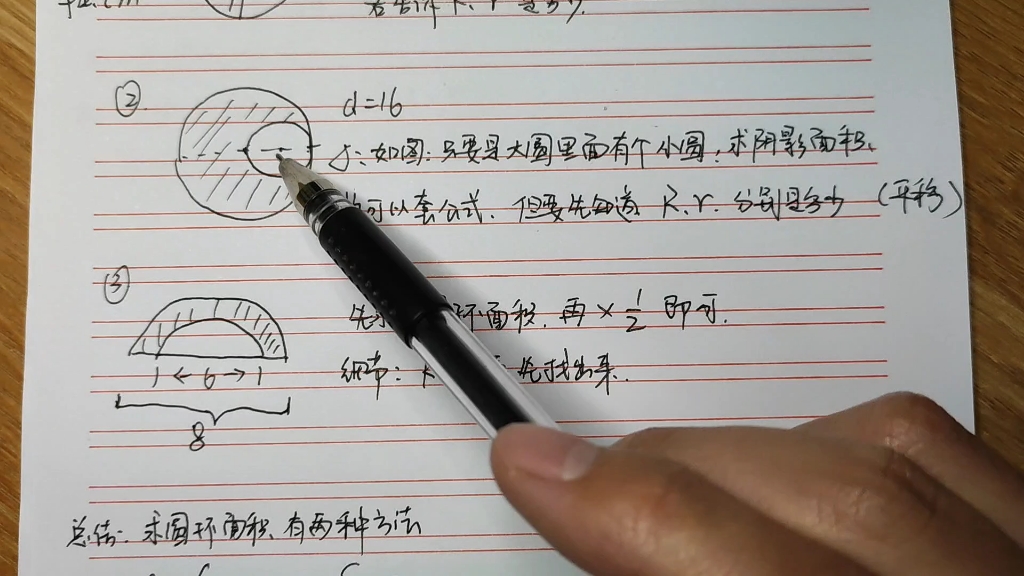 ②
d=16
如图:只要是大圆里面有个小圆,求阴影面积、
可以套公式.但要先知道 R、r.分别是多少(平移)
③
环面积,再×1/2 即可.
1←6→1
细节:
先找出来.
8
总结:求圆环面积,有两种方法